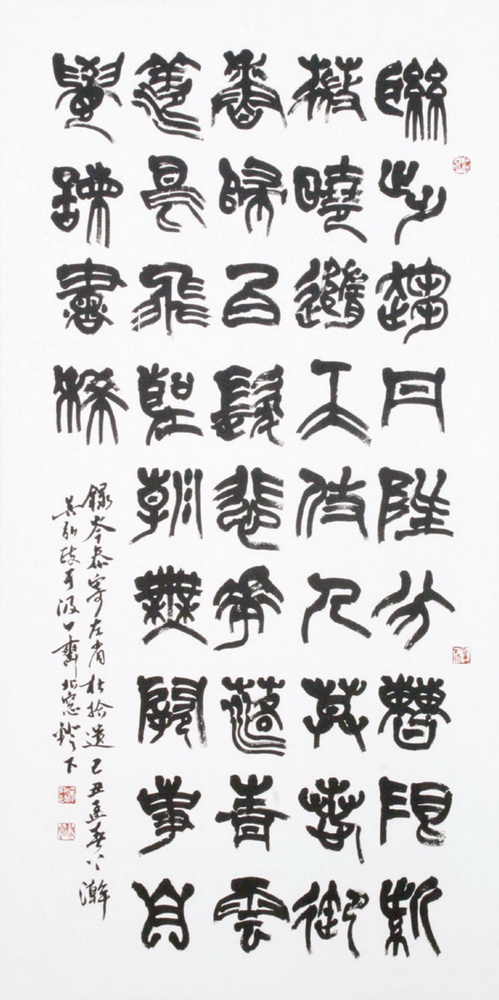 聯步趨丹陛分曹限紫
薇曉隨天仗入暮惹御
香歸白髮悲花落青雲
羨鳥飛聖朝無闕事自
覺諫書稀
錄岑參寄左省杜拾遺己丑孟春
于汲古齋北窗燈下